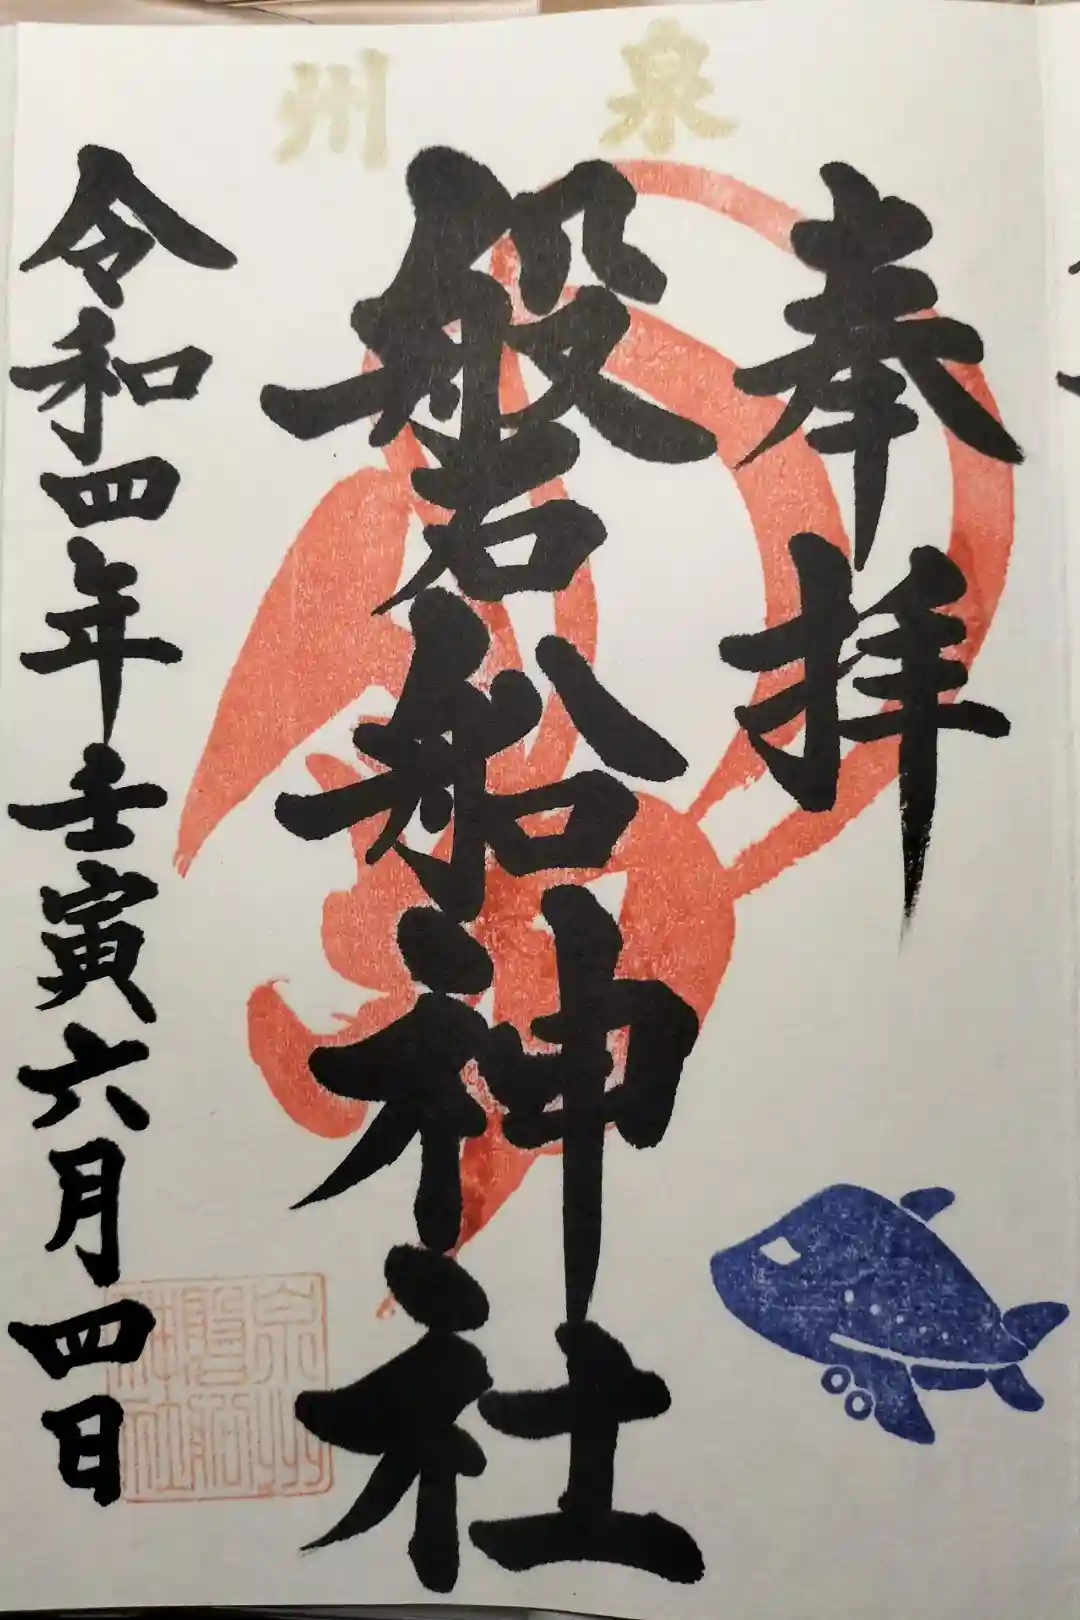 泉州
奉拝
磐船神社
令和四年壬寅六月四日
泉州磐船神社